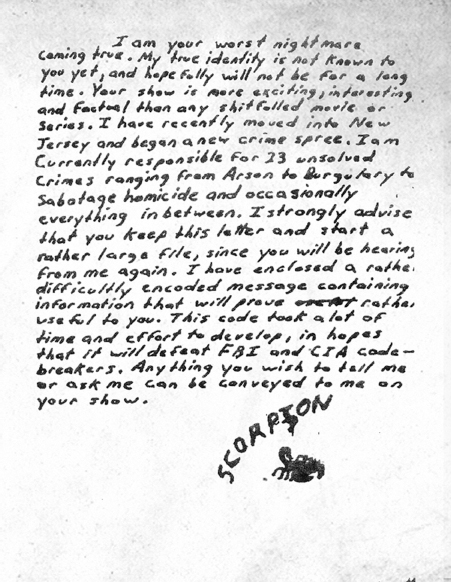 I am your worst nightmare
coming true. My true identity is not known to
you yet, and hopefully will not be for a long
time. Your show is more exciting, interesting
and factual than any shitfilled movie or
series. I have recently moved into New
Jersey and began a new crime spree. I am
Currently responsible for 13 unsolved
Crimes ranging from Arson to Burgulary to
Sabotage homicide and occasionally
everything in between. I strongly advise
that you keep this letter and start a
rather large file, since you will be hearing
from me again. I have enclosed a rather
difficultly encoded message containing
information that will prove rather
useful to you. This code took a lot of
time and effort to develop, in hopes
that it will defeat FBI and CIA code-
breakers. Anything you wish to tell me
or ask me can be conveyed to me on
your show.
SCORPION